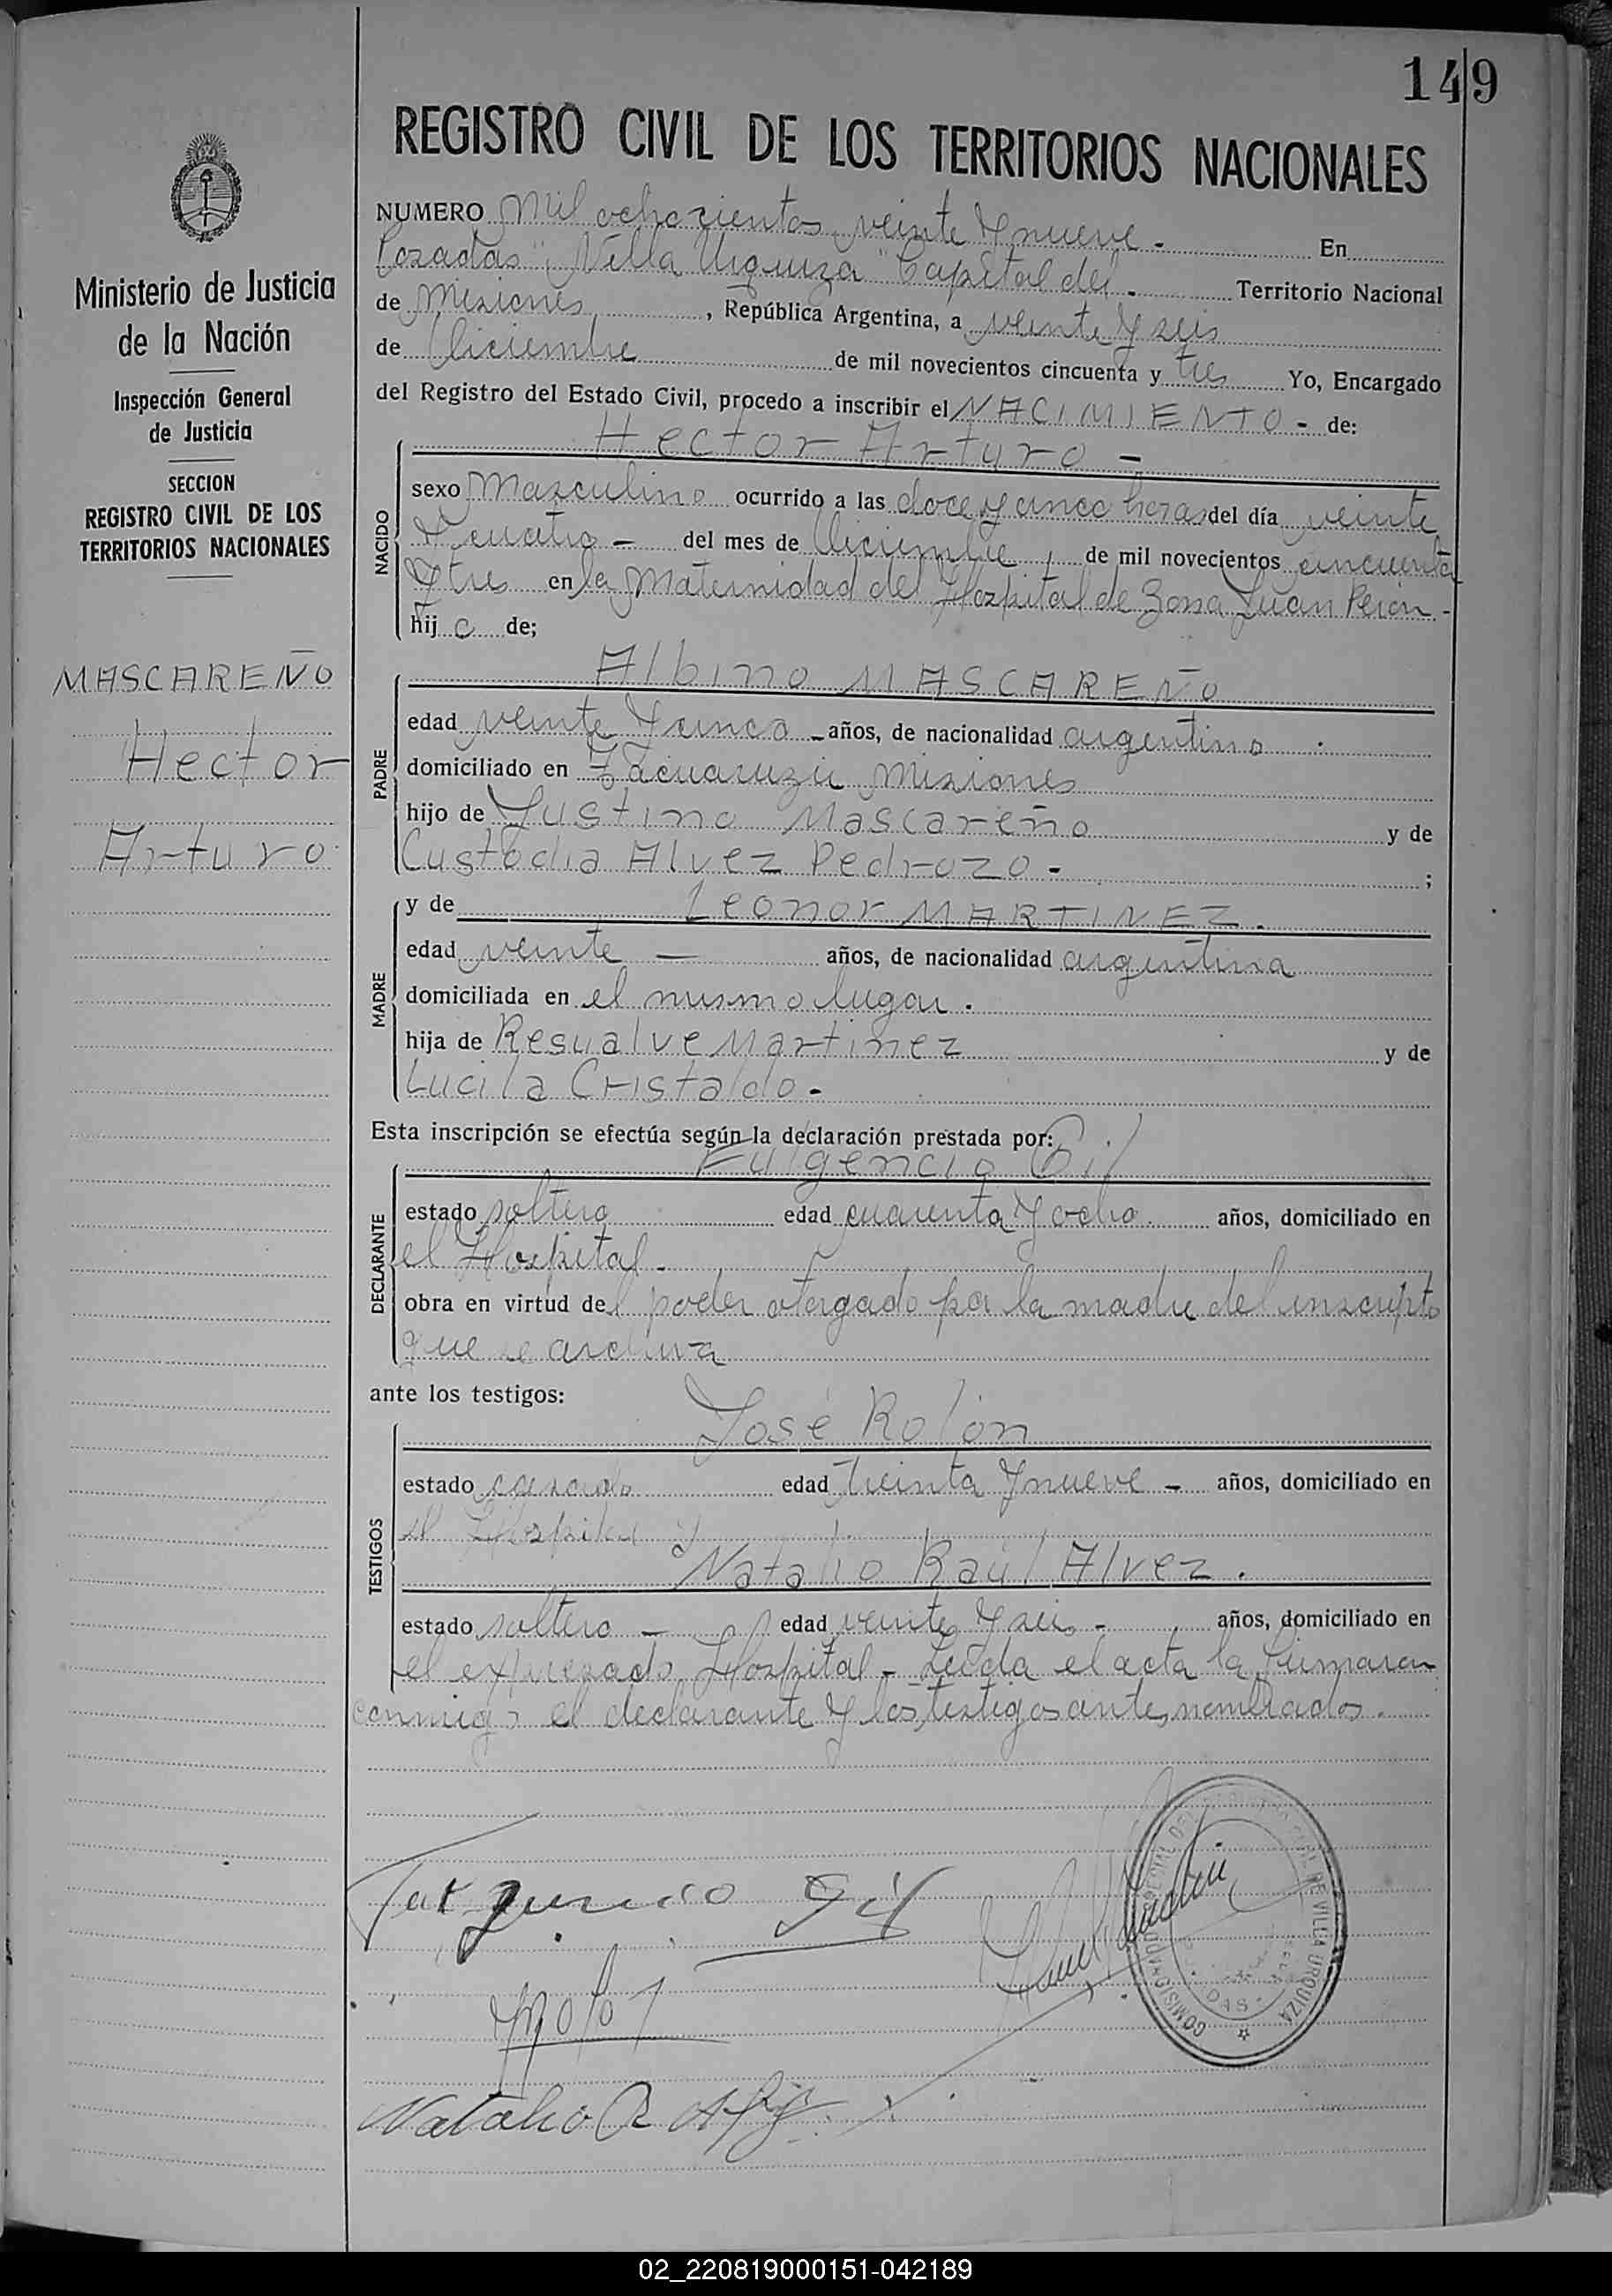 149
REGISTRO CIVIL DE LOS TERRITORIOS NACIONALES
Ministerio de Justicia
de la Nación
Inspección General
de Justicia
SECCION
REGISTRO CIVIL DE LOS
TERRITORIOS NACIONALES
MASCAREÑO
Hector
Arturo
NUMERO Mil ochocientos veinte y nueve - En
Posadas "Villa Urquiza" Capital del - Territorio Nacional
de Misiones, República Argentina, a veinte y seis
de Diciembre de mil novecientos cincuenta y tres Yo, Encargado
del Registro del Estado Civil, procedo a inscribir el NACIMIENTO - de:
Hector Arturo -
NACIDO
sexo Masculino ocurrido a las doce y cinco horas del día veinte
y cuatro - del mes de Diciembre, de mil novecientos cincuenta
y tres en la Maternidad del Hospital de Zona Juan Peron -
hij o de;
Albino MASCAREÑO
PADRE
edad veinte y cinco - años, de nacionalidad argentino.
domiciliado en Tacuaruzú Misiones
hijo de Justino Mascareño y de
Custodia Alvez Pedrozo - ;
y de Leonor MARTINEZ.
MADRE
edad veinte - años, de nacionalidad argentina
domiciliada en el mismo lugar.
hija de Resualve Martinez y de
Lucila Cristaldo -
Esta inscripción se efectúa según la declaración prestada por:
Fulgencio Gil
DECLARANTE
estado soltero edad cuarenta y ocho años, domiciliado en
el Hospital -
obra en virtud del poder otorgado por la madre del inscripto
que se archiva
ante los testigos:
José Rolón
TESTIGOS
estado casado edad treinta y nueve - años, domiciliado en
el Hospital y
Natalio Raúl Alvez.
estado soltero - edad veinte y seis - años, domiciliado en
el expresado Hospital - Leída el acta la firmaron
conmigo el declarante y los testigos antes nombrados.
Gil
Natalio R
COMISIONADO DE VILLA URQUIZA
02_220819000151-042189